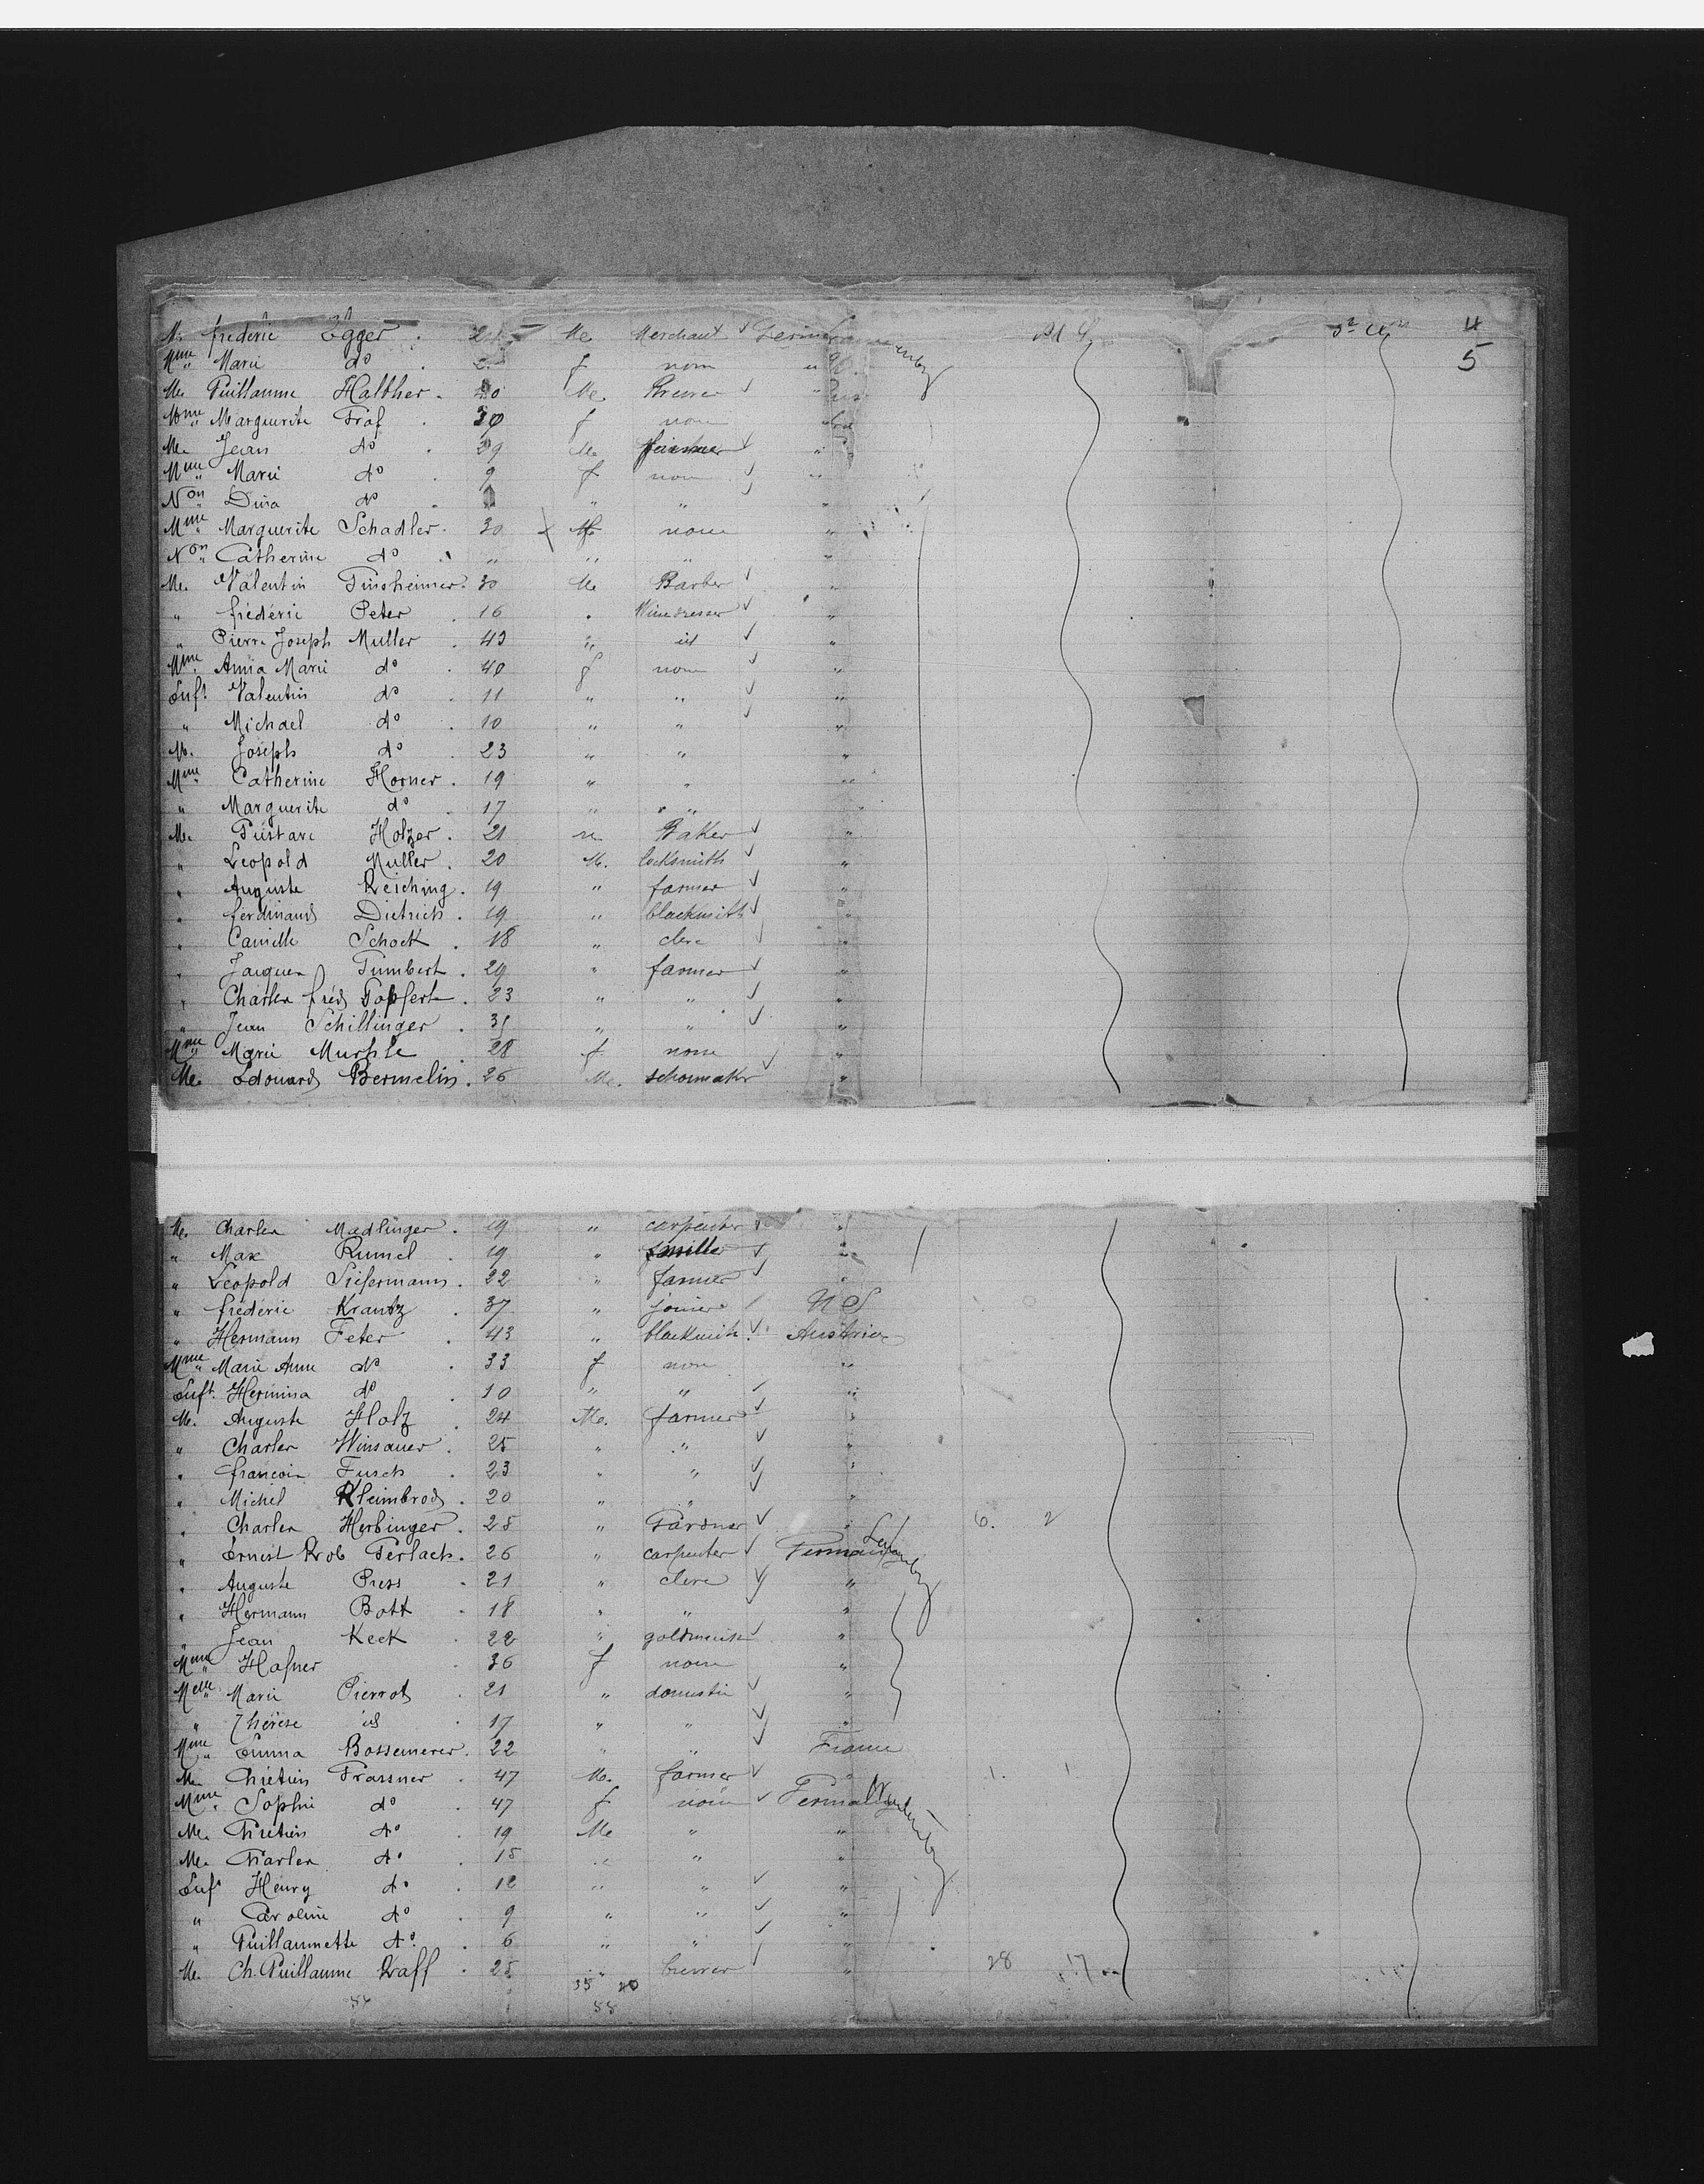 M. frederic Egger . Me Merchant N Y 2d Cl 4
Mme Marie do f none 5
Me. Guillaume Halther . 20 Me. Brewer
Mme Marguerite Graf . 30 f none
Me. Jean do . 29 Me farmer
Mme Marie do . 9 f none
Non Dina do . " "
Mme Marguerite Schadler . 30 none "
Non Catherine do . " " " "
Me. Valentin Ginsheimer . 30 Me Barber "
" frédéric Peter . 16 " Winedresser "
" Pierre Joseph Muller . 43 " id "
Mme Anna Marie do . 40 f none "
Inft. Valentin do . 11 " " "
" Michael do . 10 " " "
M. Joseph do . 23 " " "
Mme Catherine Horner . 19 " " "
" Marguerite do . 17 " " "
Me. Gustave Holzer . 21 m. Baker "
" Leopold Muller . 20 M. locksmith "
" Auguste Reiching . 19 " farmer "
" ferdinand Dietrich . 19 " blacksmith "
" Camille Schock . 18 " clerc "
" Jacques Gumbert . 29 " farmer "
" Charles fréd Topfert . 23 " " "
" Jean Schillinger . 31 " " "
Mme Marie Murhle . 28 f none "
Me. Edouard Bermelin . 26 Me. schoemakr "
Me. Charles Madlinger . 19 " carpenter "
" Max Rumel . 19 " miller "
" Leopold Siefermann . 22 " farmer "
" frédéric Krantz . 37 " joiner U S
" Hermann Feter . 43 " blacksmith . Austria
Mme Marie Anne do . 33 f none "
Inft. Hermina do . 10 " " "
M. Auguste Holz . 24 Me. farmer "
" Charles Winsauer . 25 " " "
" francois Fusch . 23 " " "
" Michel Kleimbrod . 20 " " "
" Charles Herbinger . 28 " Gardner " 6. 2
" Ernest Rob Gerlach . 26 " carpenter Germany
" Auguste Press . 21 " clerc "
" Hermann Bott . 18 " " "
" Jean Keck . 22 " goldsmith "
Mme Hafner . 36 f none "
Melle Marie Pierrot . 21 " domestic "
" Thérèse id . 17 " " "
Mme Emma Bossemerer . 22 " " France
Me. Chrétien Grassner . 47 Me. farmer " 1. 1
Mme Sophie do . 47 f none Germany
Me. Chretien do . 19 Me " "
Me. Charles do . 15 " " "
Inft Henry do . 12 " " "
" Caroline do . 9 " " "
" Guillaumette do . 6 " " "
Me. Ch. Guillaume Graff . 25 " brewer " 28 17
35 20